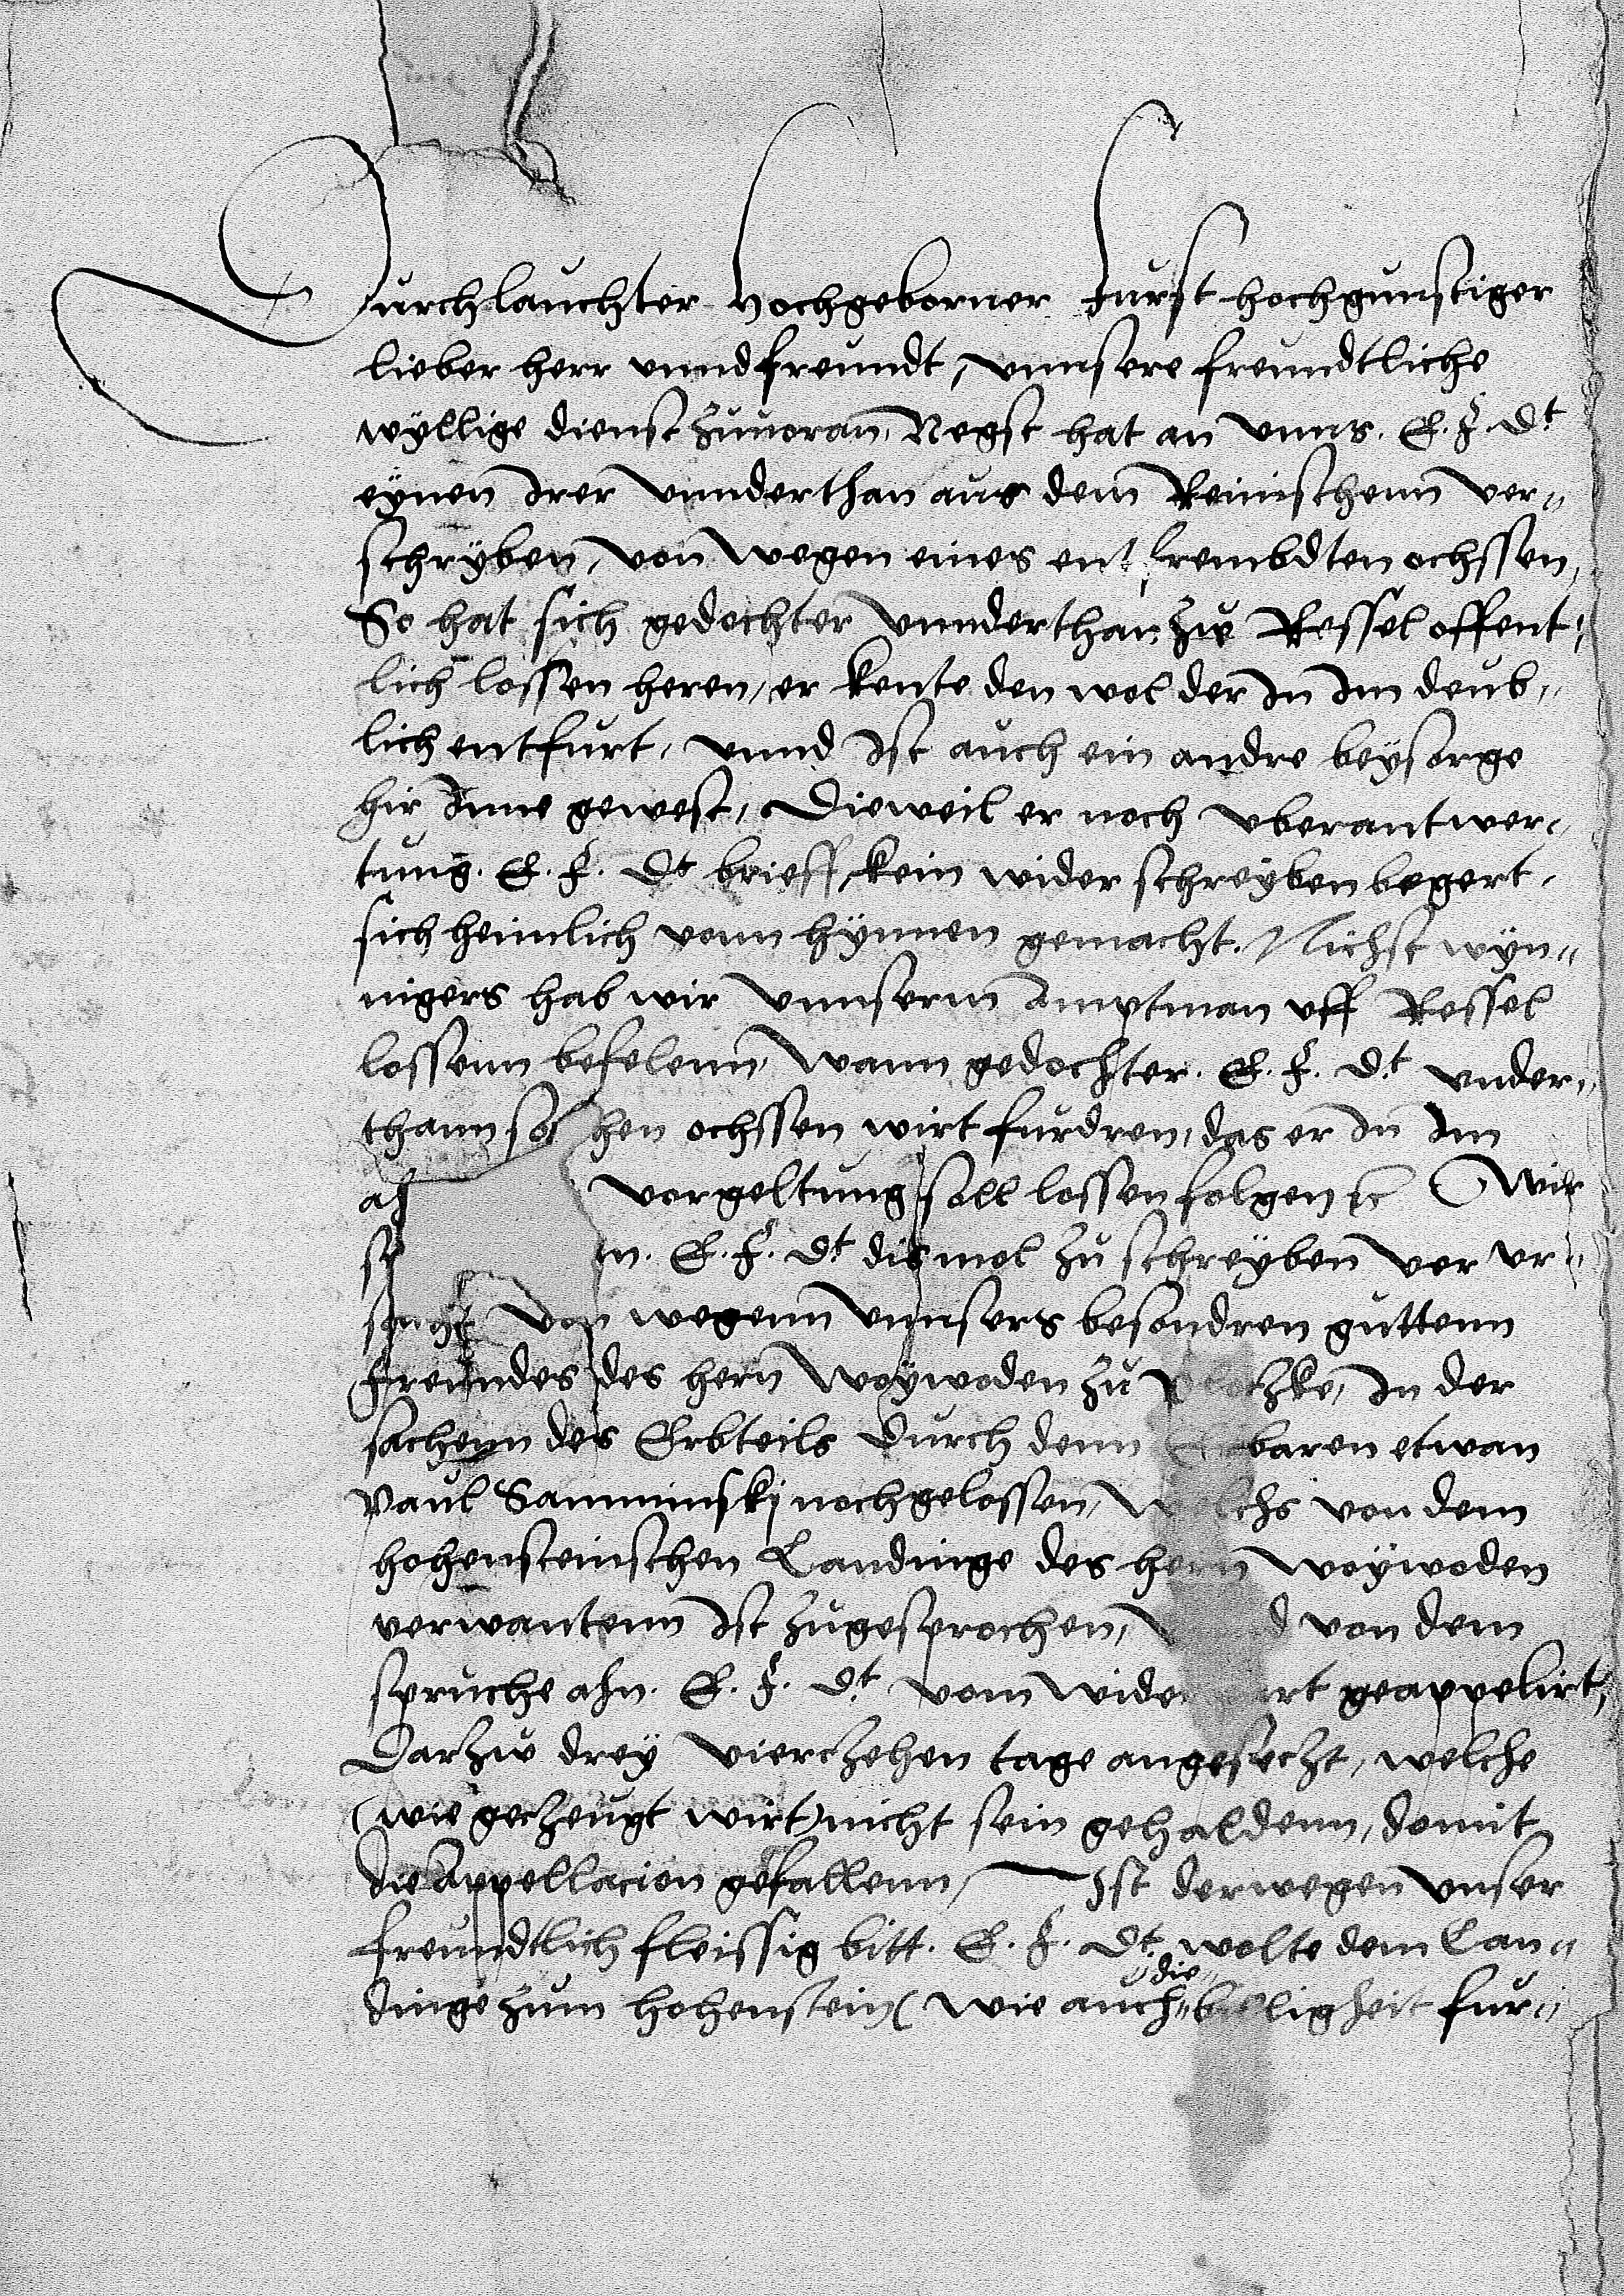 Durchlauchter Hochgeborner Furst hochgunstiger
lieber herr unnd freundt, unnsere freundtliche
wyllige dienst zuuoran, Negst hat an unns. E. F. Dt
eynen Irer unnderthan aus dem Reinischenn ver-
schryben, von wegen eines entfrembdten ochssen,
So hat sich gedochter unnderthan zw Ressel offent-
lich lossen heren, er kente den wol der In Im deub-
lich entfurt, unnd Ist auch ein andre beysorge
hir Inne gewest, Dieweil er noch uberantwer-
tung. E. F. Dt brieff, kein wider schreyben begert,
sich heimlich vonn hynnen gemacht. Nichst wyn-
nigers hab wir unnserm Amptman uff Ressel
lossenn befelenn, wann gedochter. E. F. Dt under-
thann so hen ochssen wirt furdren, das er In Im
vorgeltung soll lossen folgen Wir
E. F. Dt dis mol zu schreyben ver ur-
von wegenn unnsers besondren guttenn
freundes des hern Woywoden zu Plotzke, In der
sachenn des Erbteils durch denn Erbaren etwan
Paul Samminskj nochgelossen, Welchs von dem
hohensteinschen Landinge des hern woywoden
verwantenn Ist zugesprochen, Vnnd von dem
spruche ahn. E. F. Dt vom wider geappelirt,
Darzw drey vierczehen tage angeseczt, welche
(wie geczeugt wirt) nicht sein gehaldenn, domit
die Appellacion gefallenn, Ist derwegen unser
freundtlich fleissig bitt. E. F. Dt wolte dem Lan-
dinge zum hohenstein (wie auch die billigheit fur-